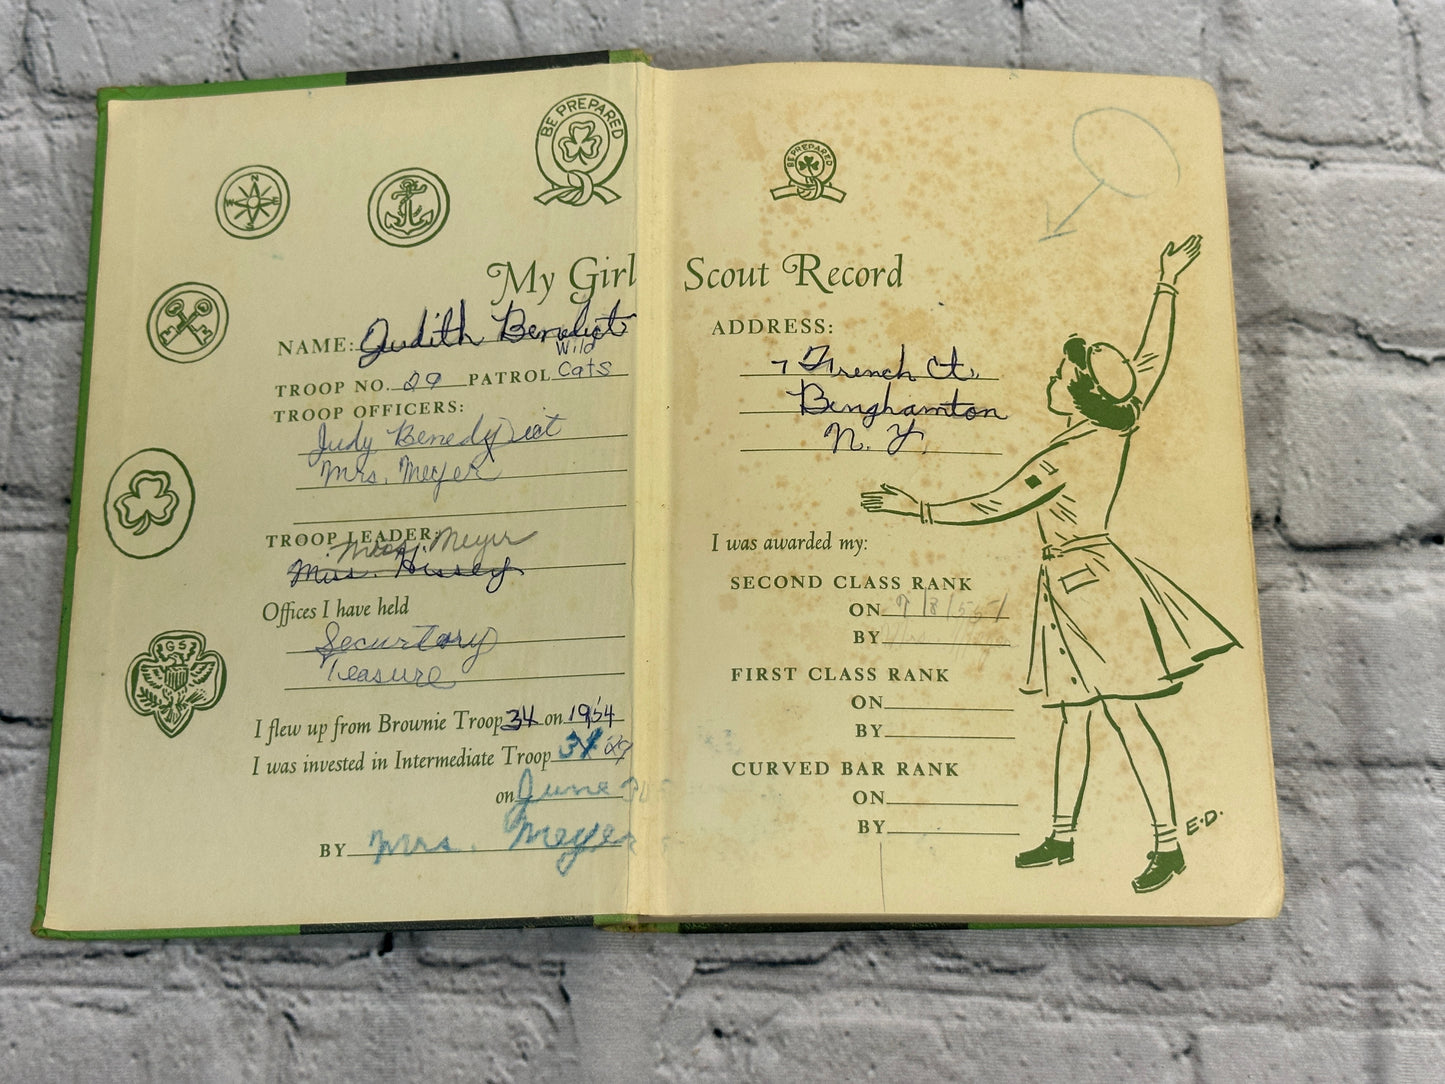 BE PREPARED
N
W E
S
My Girl Scout Record
NAME: Judith Benedict
Wild
TROOP NO. 29 PATROL Cats
TROOP OFFICERS:
Judy Benedict
Mrs. Meyer
TROOP LEADER:
Meyer
Mrs. Hussey
Offices I have held
Securtary
Teasure
GS
I flew up from Brownie Troop 34 on 1954
I was invested in Intermediate Troop 34 29
on June
BY Mrs. Meyer
BE PREPARED
ADDRESS:
7 French Ct.
Binghamton
N. Y.
I was awarded my:
SECOND CLASS RANK
ON 9/8/55
BY Mrs.
FIRST CLASS RANK
ON
BY
CURVED BAR RANK
ON
BY
E.D.